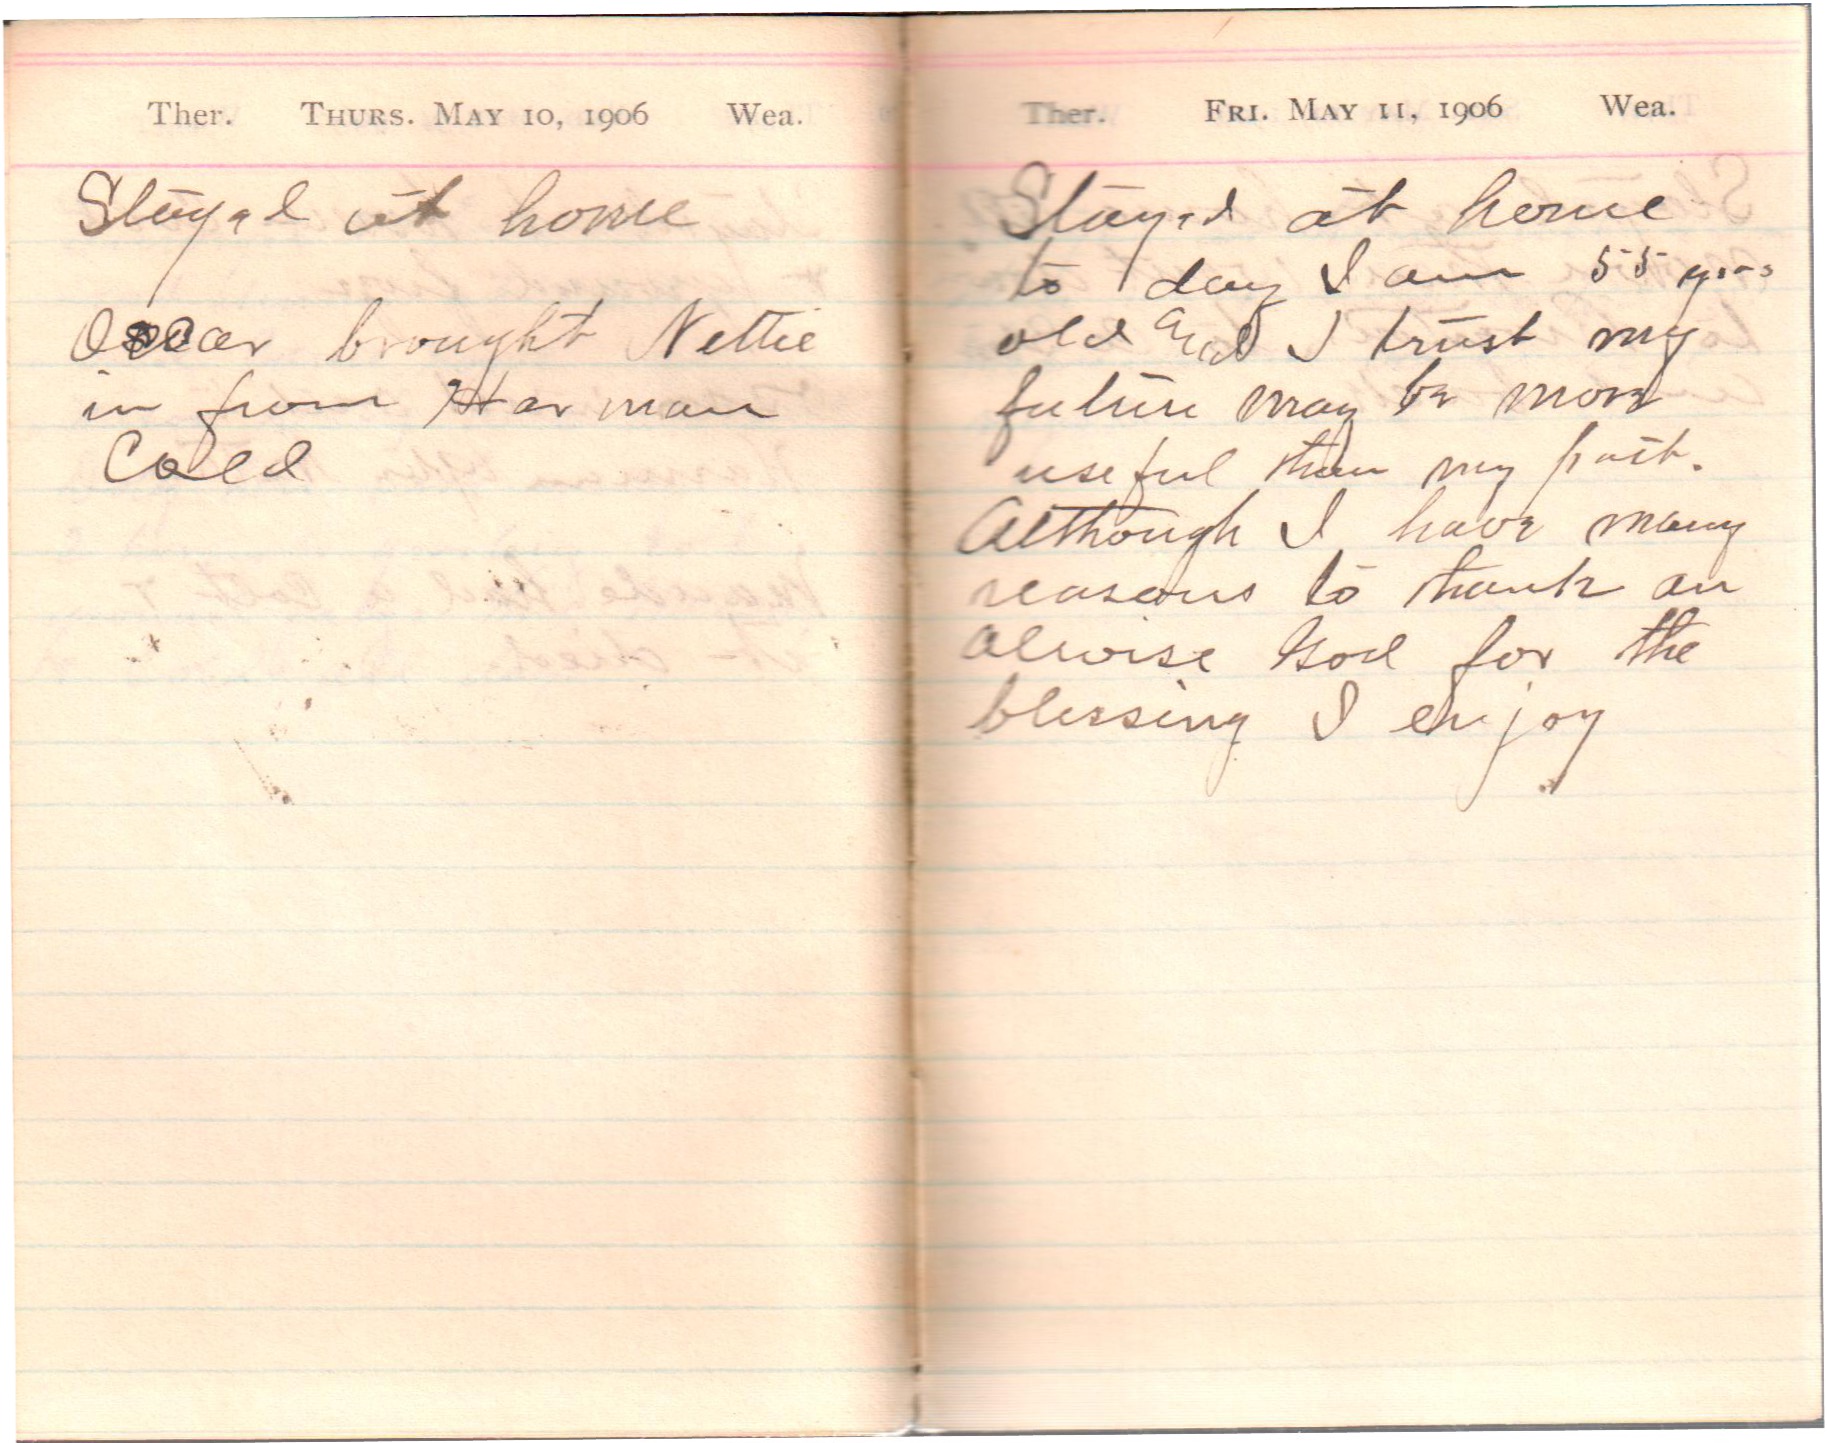 Ther. THURS. MAY 10, 1906 Wea.
Stayed at home
Oscar brought Nettie
in from Harman
Cold
Ther. FRI. MAY 11, 1906 Wea.
Stayed at home
to day I am 55 years
old and I trust my
future may be more
useful than my past.
Although I have many
reasons to thank an
alwise God for the
blessing I enjoy